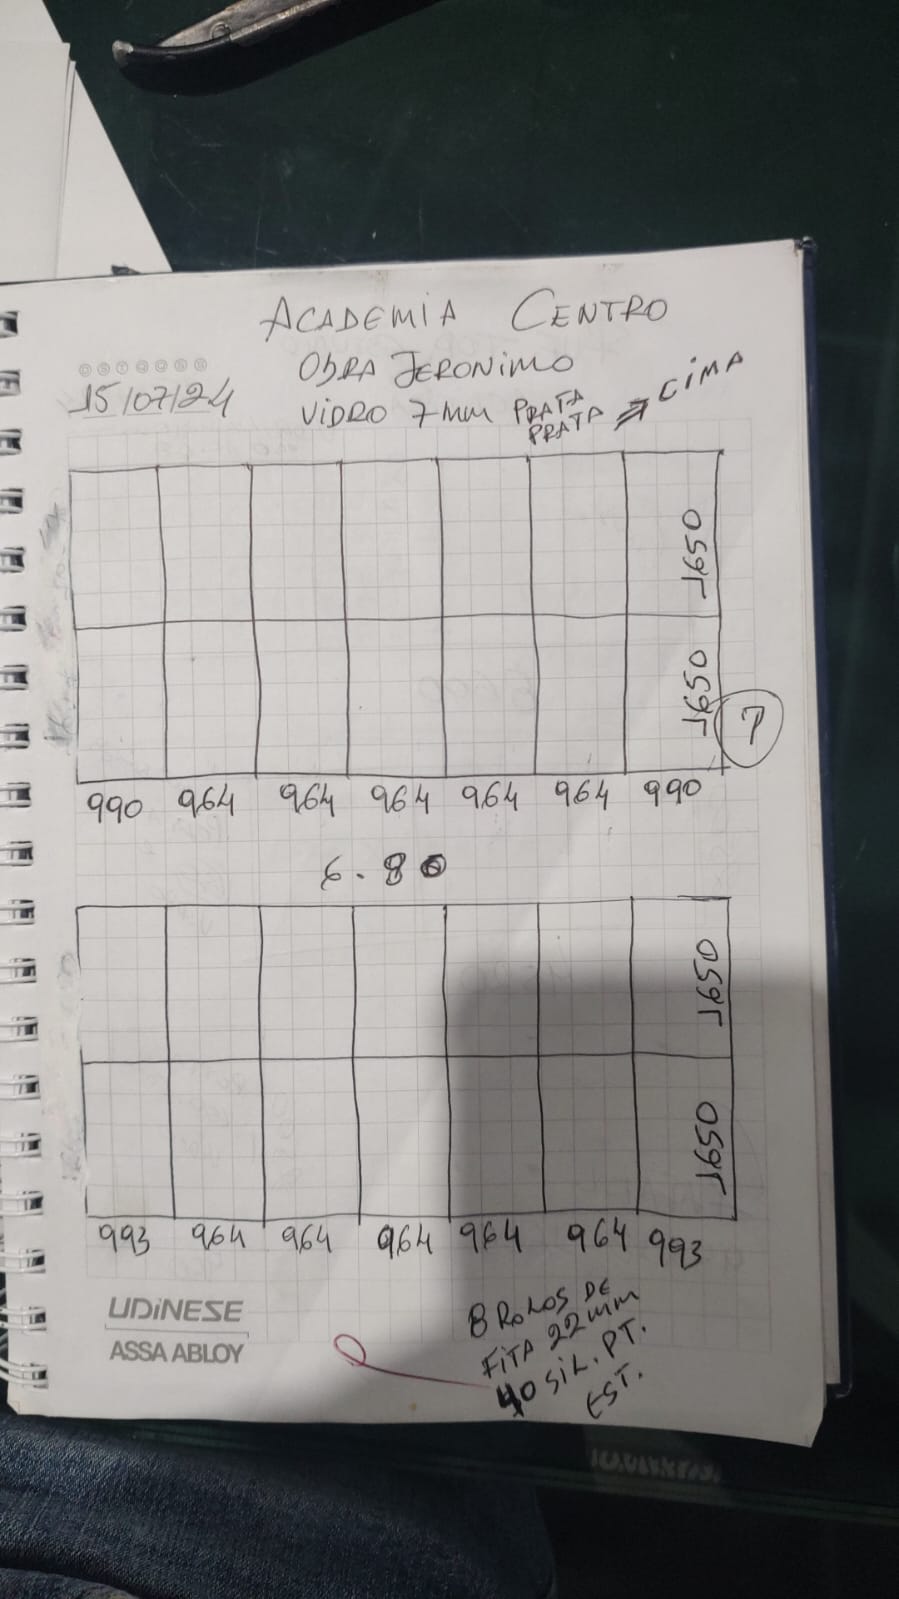 ACADEMIA CENTRO
OBRA JERONIMO
15/07/24
VIDRO 7MM PRATA
PRATA → CIMA
1650
1650
7
990 964 964 964 964 964 990
6.80
1650
1650
993 964 964 964 964 964 993
UDINESE
ASSA ABLOY
8 ROLOS DE
FITA 22MM
40 SIL. PT.
EST.